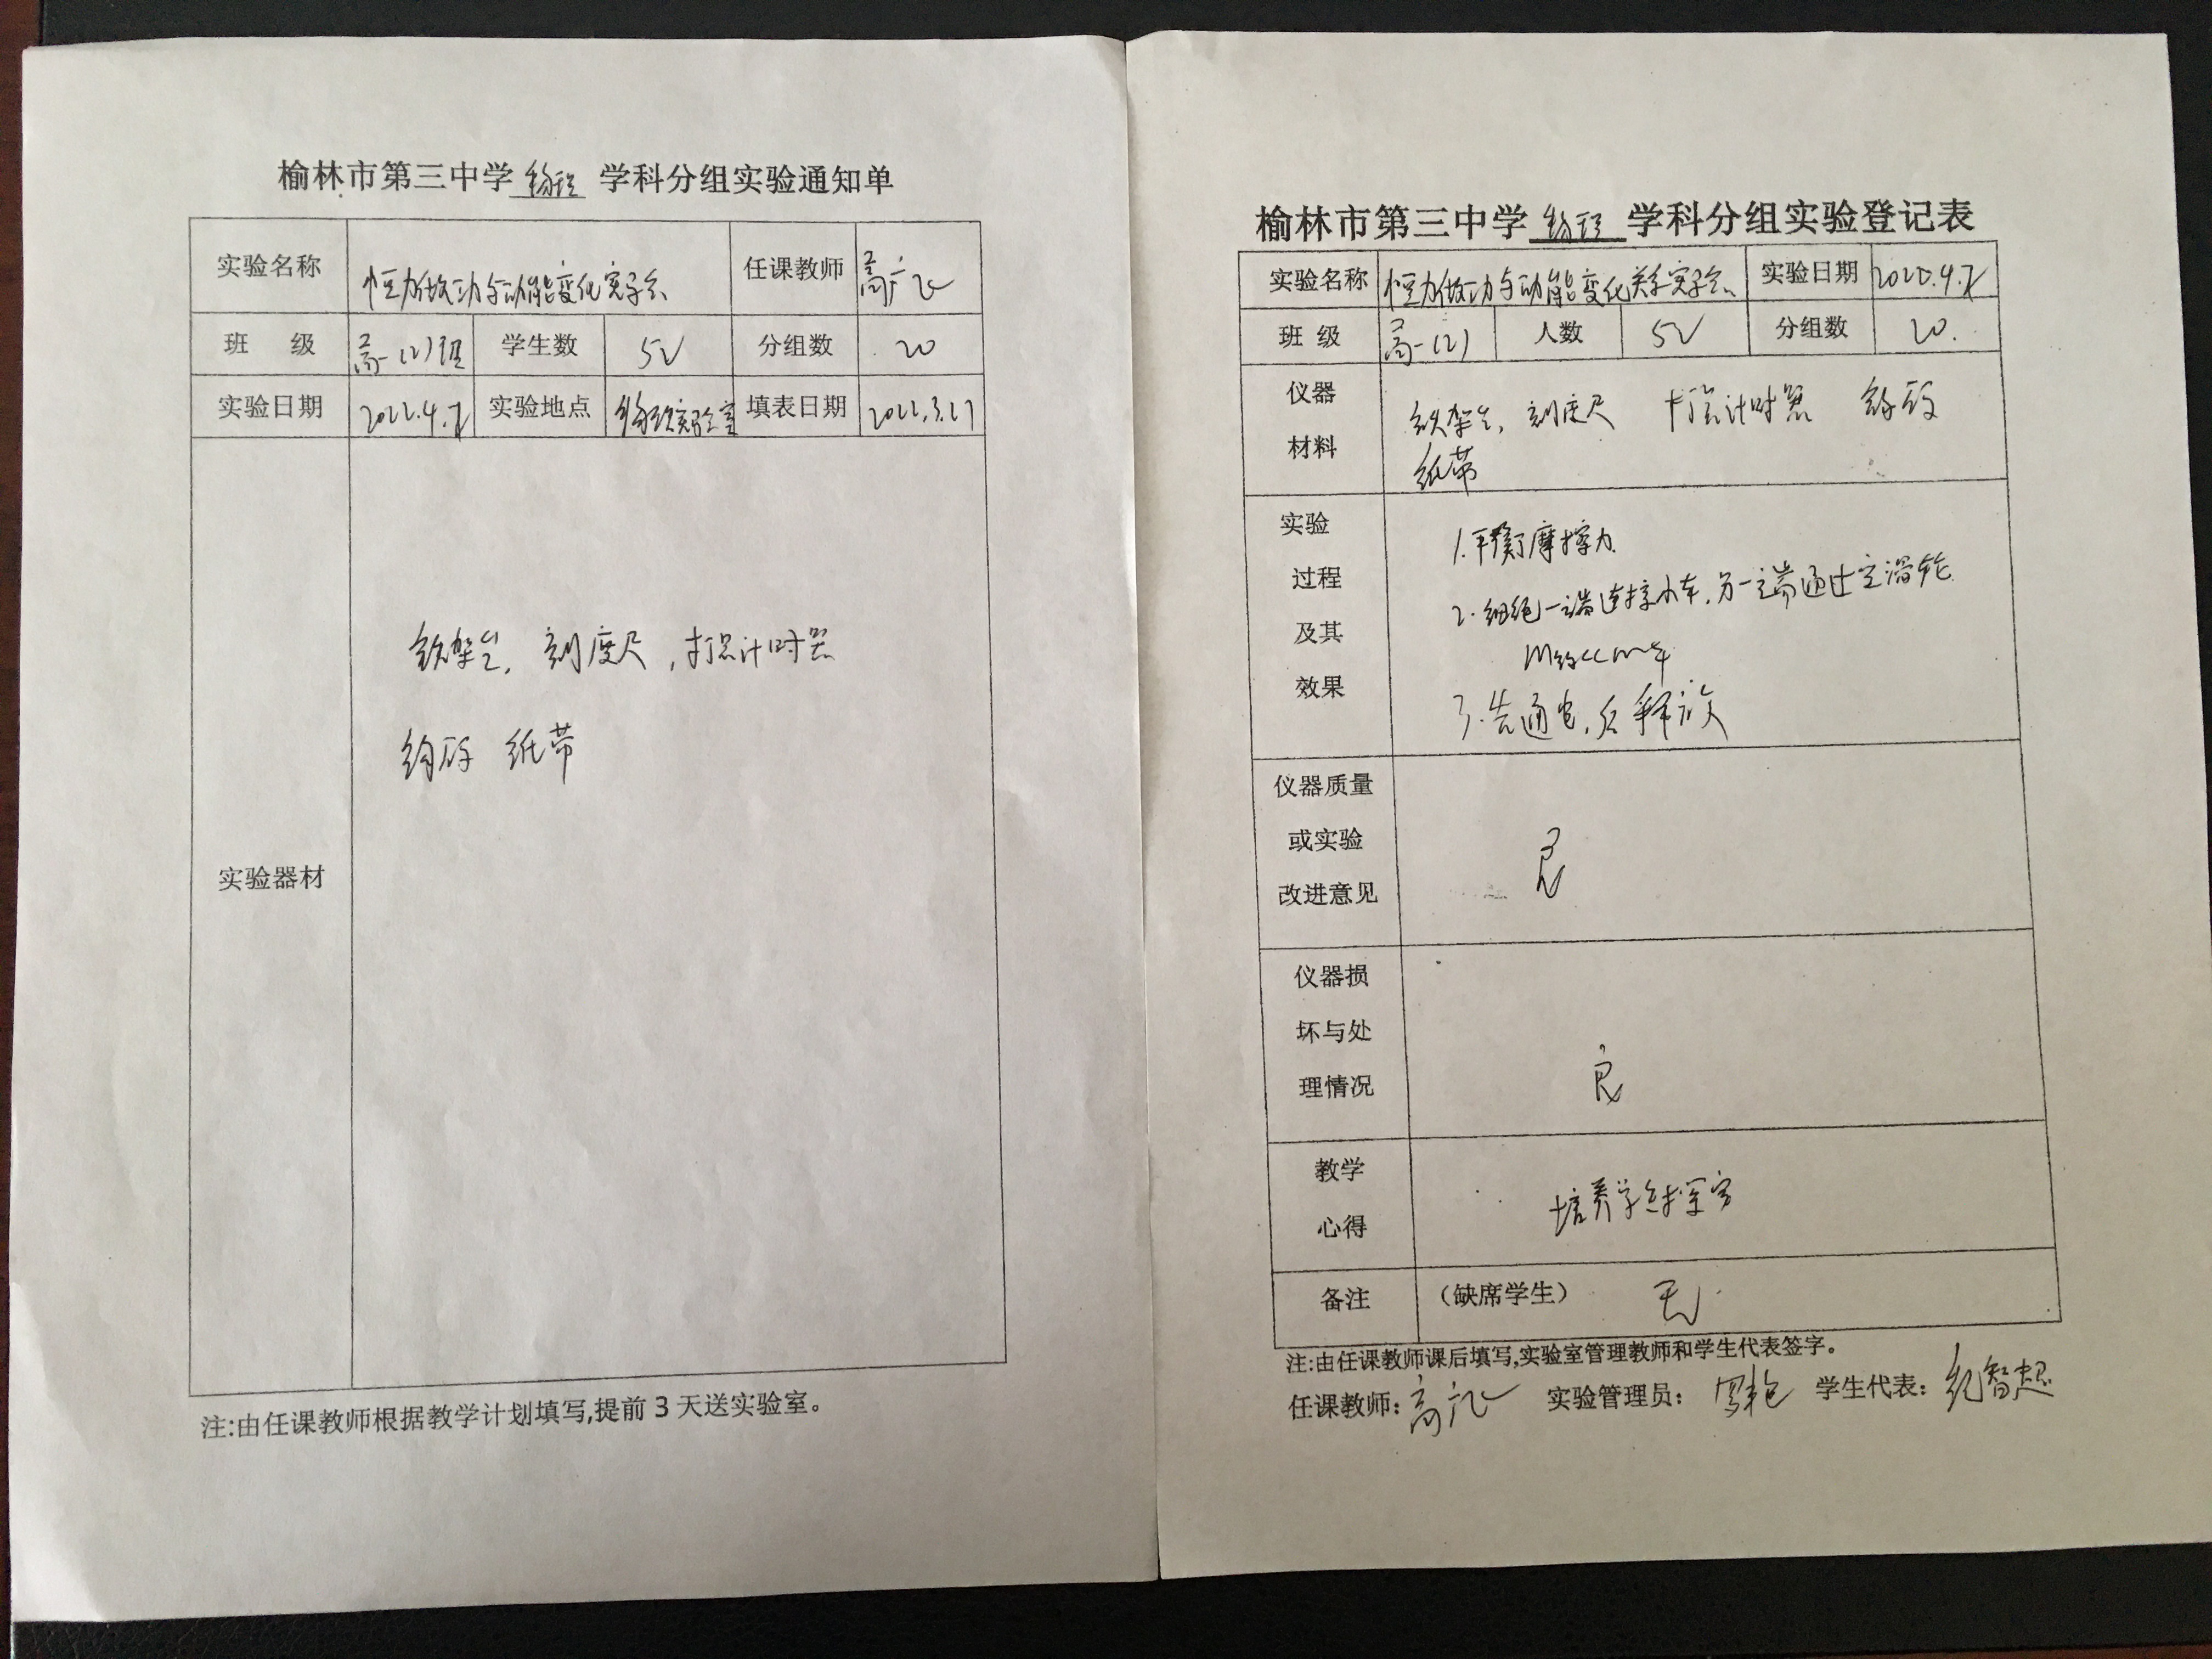 榆林市第三中学 物理 学科分组实验通知单
实验名称 恒力做功与动能变化实验 任课教师 高广飞
班 级 高一(2)班 学生数 52 分组数 20
实验日期 2022.4.2 实验地点 物理实验室 填表日期 2022.3.27
实验器材
铁架台, 刻度尺, 打点计时器
钩码 纸带
注:由任课教师根据教学计划填写,提前3天送实验室。
榆林市第三中学 物理 学科分组实验登记表
实验名称 恒力做功与动能变化关系实验 实验日期 2022.4.2
班 级 高一(2) 人数 52 分组数 20.
仪器材料
铁架台, 刻度尺 打点计时器 钩码
纸带
实验过程及其效果
1.平衡摩擦力
2.细绳一端连接小车,另一端通过定滑轮
M钩<<m车
3.先通电,后释放
仪器质量或实验改进意见 良
仪器损坏与处理情况 良
教学心得 培养学生探究
备注 (缺席学生) 无.
注:由任课教师课后填写,实验室管理教师和学生代表签字。
任课教师: 高广飞 实验管理员: 学生代表: 纪智超